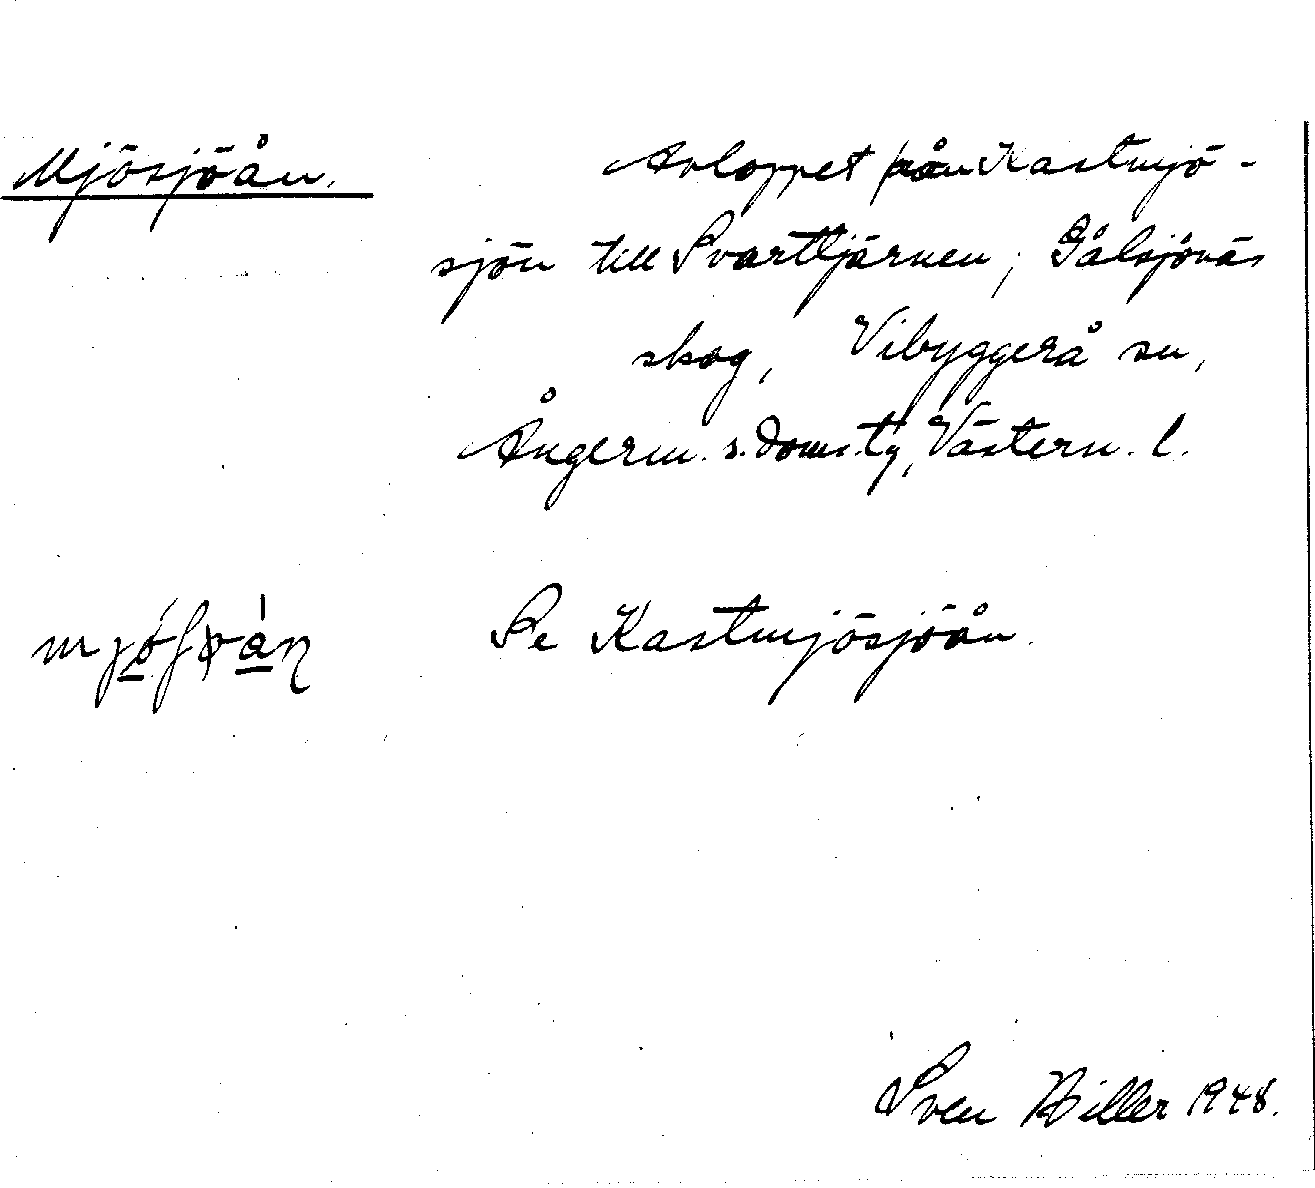 Mjösjöån.
Avloppet från Kastmjö-
sjön till Svarttjärnen, Gålsjönäs
skog, Vibyggerå sn,
Ångerm. s. doms. tg, Västern. l.
Se Kastmjösjöån.
Sven Hiller 1948.